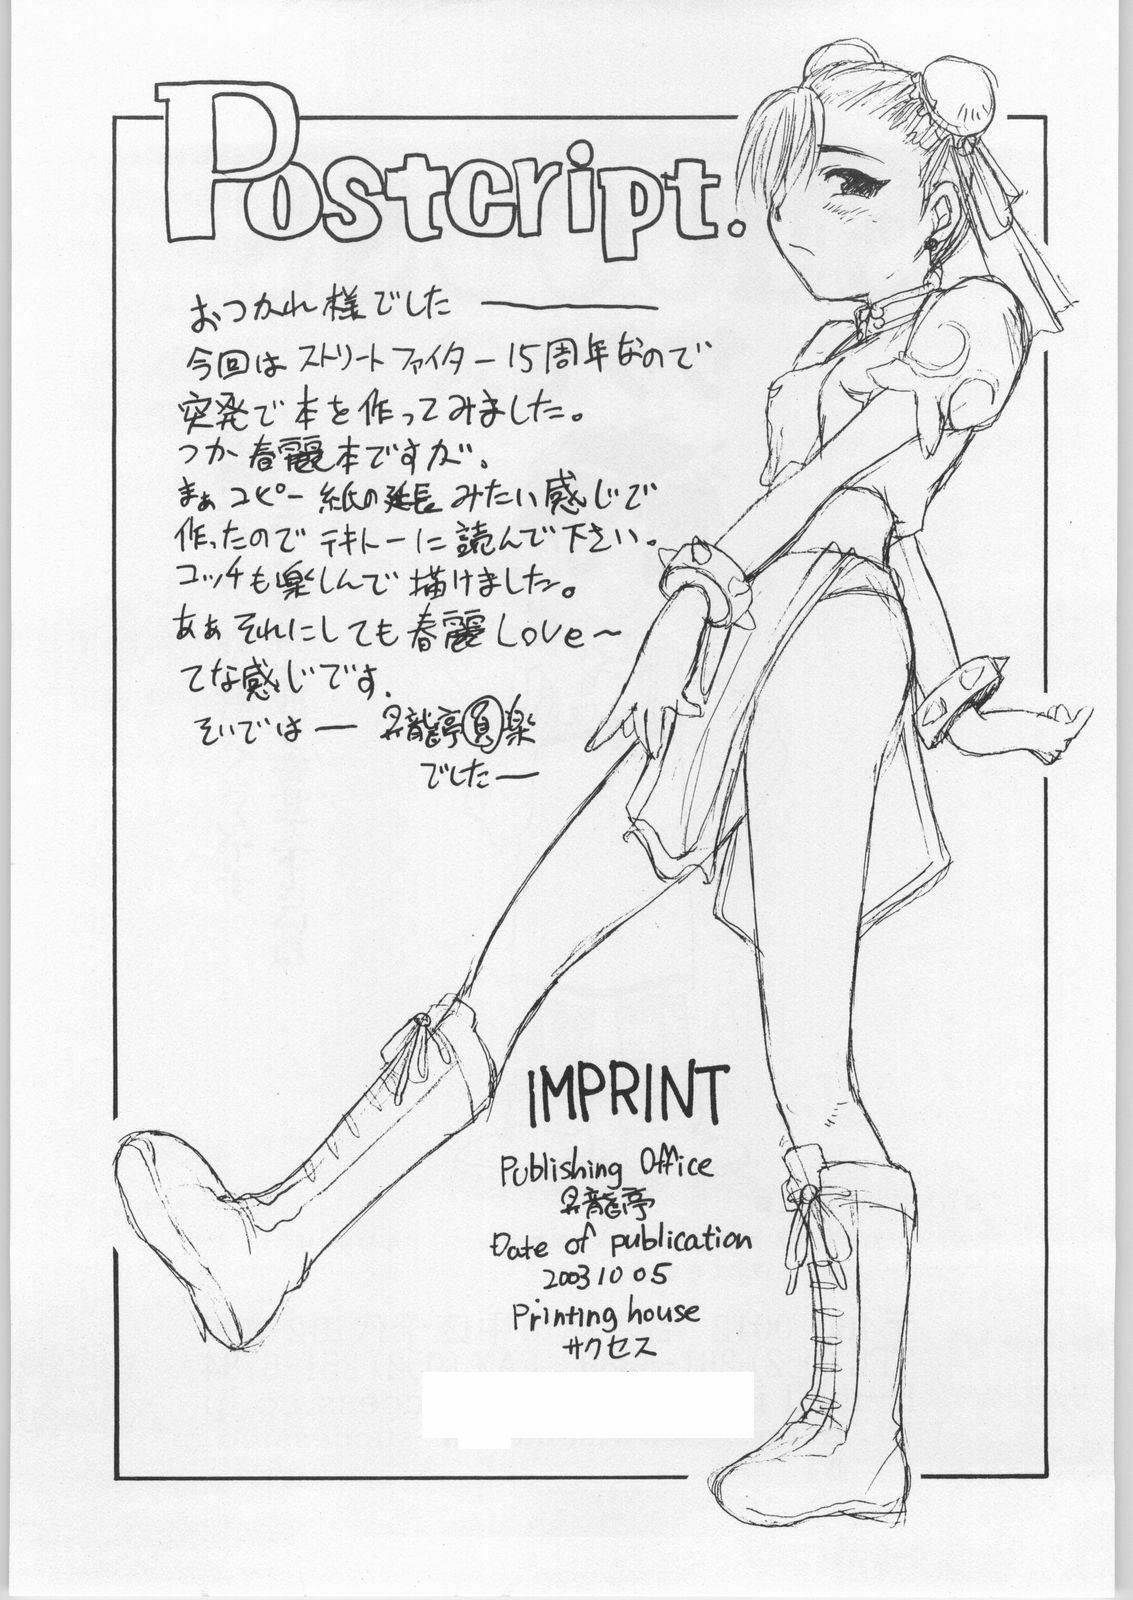 Postcript.
おつかれ様でした ―
今回は ストリートファイター 15周年なので
突発で 本を 作ってみました。
つか 春麗本ですが、
まぁ コピー 紙の延長 みたい感じで
作ったので テキトーに 読んで下さい。
コッチも楽しんで 描けました。
あぁ それにしても 春麗 Love～
てな感じです.
そいでは― 昇龍亭 楽
でした―
IMPRINT
Publishing Office
昇龍亭
Date of publication
2003 10 05
Printing house
サクセス